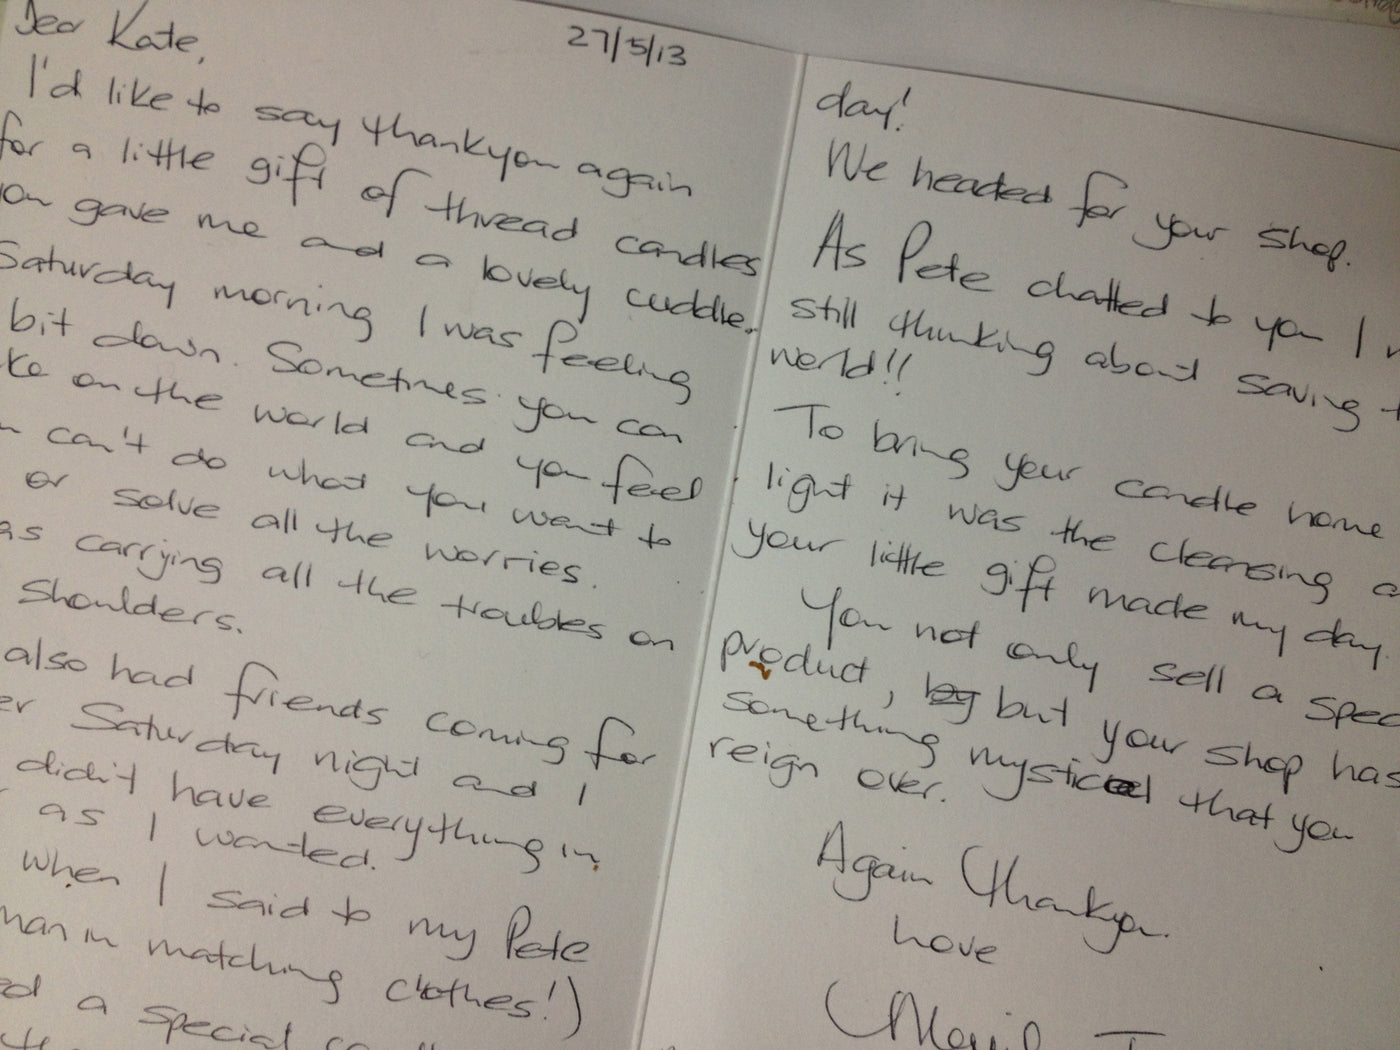 Dear Kate,
27/5/13
I'd like to say thankyou again
for a little gift of thread candles
ou gave me and a lovely cuddle.
Saturday morning I was feeling
bit down. Sometimes you can
ke on the world and you feel
can't do what you want to
or solve all the worries.
as carrying all the troubles on
shoulders.
also had friends coming for
er Saturday night and I
didn't have everything in
as I wanted.
when I said to my Pete
man in matching clothes!)
a special
day!
We headed for your shop.
As Pete chatted to you I
still thinking about saving t
world!!
To bring your candle home
light it was the cleansing a
your little gift made my day.
You not only sell a spec
product, but your shop has
something mystical that you
reign over.
Again Thankyou.
Love